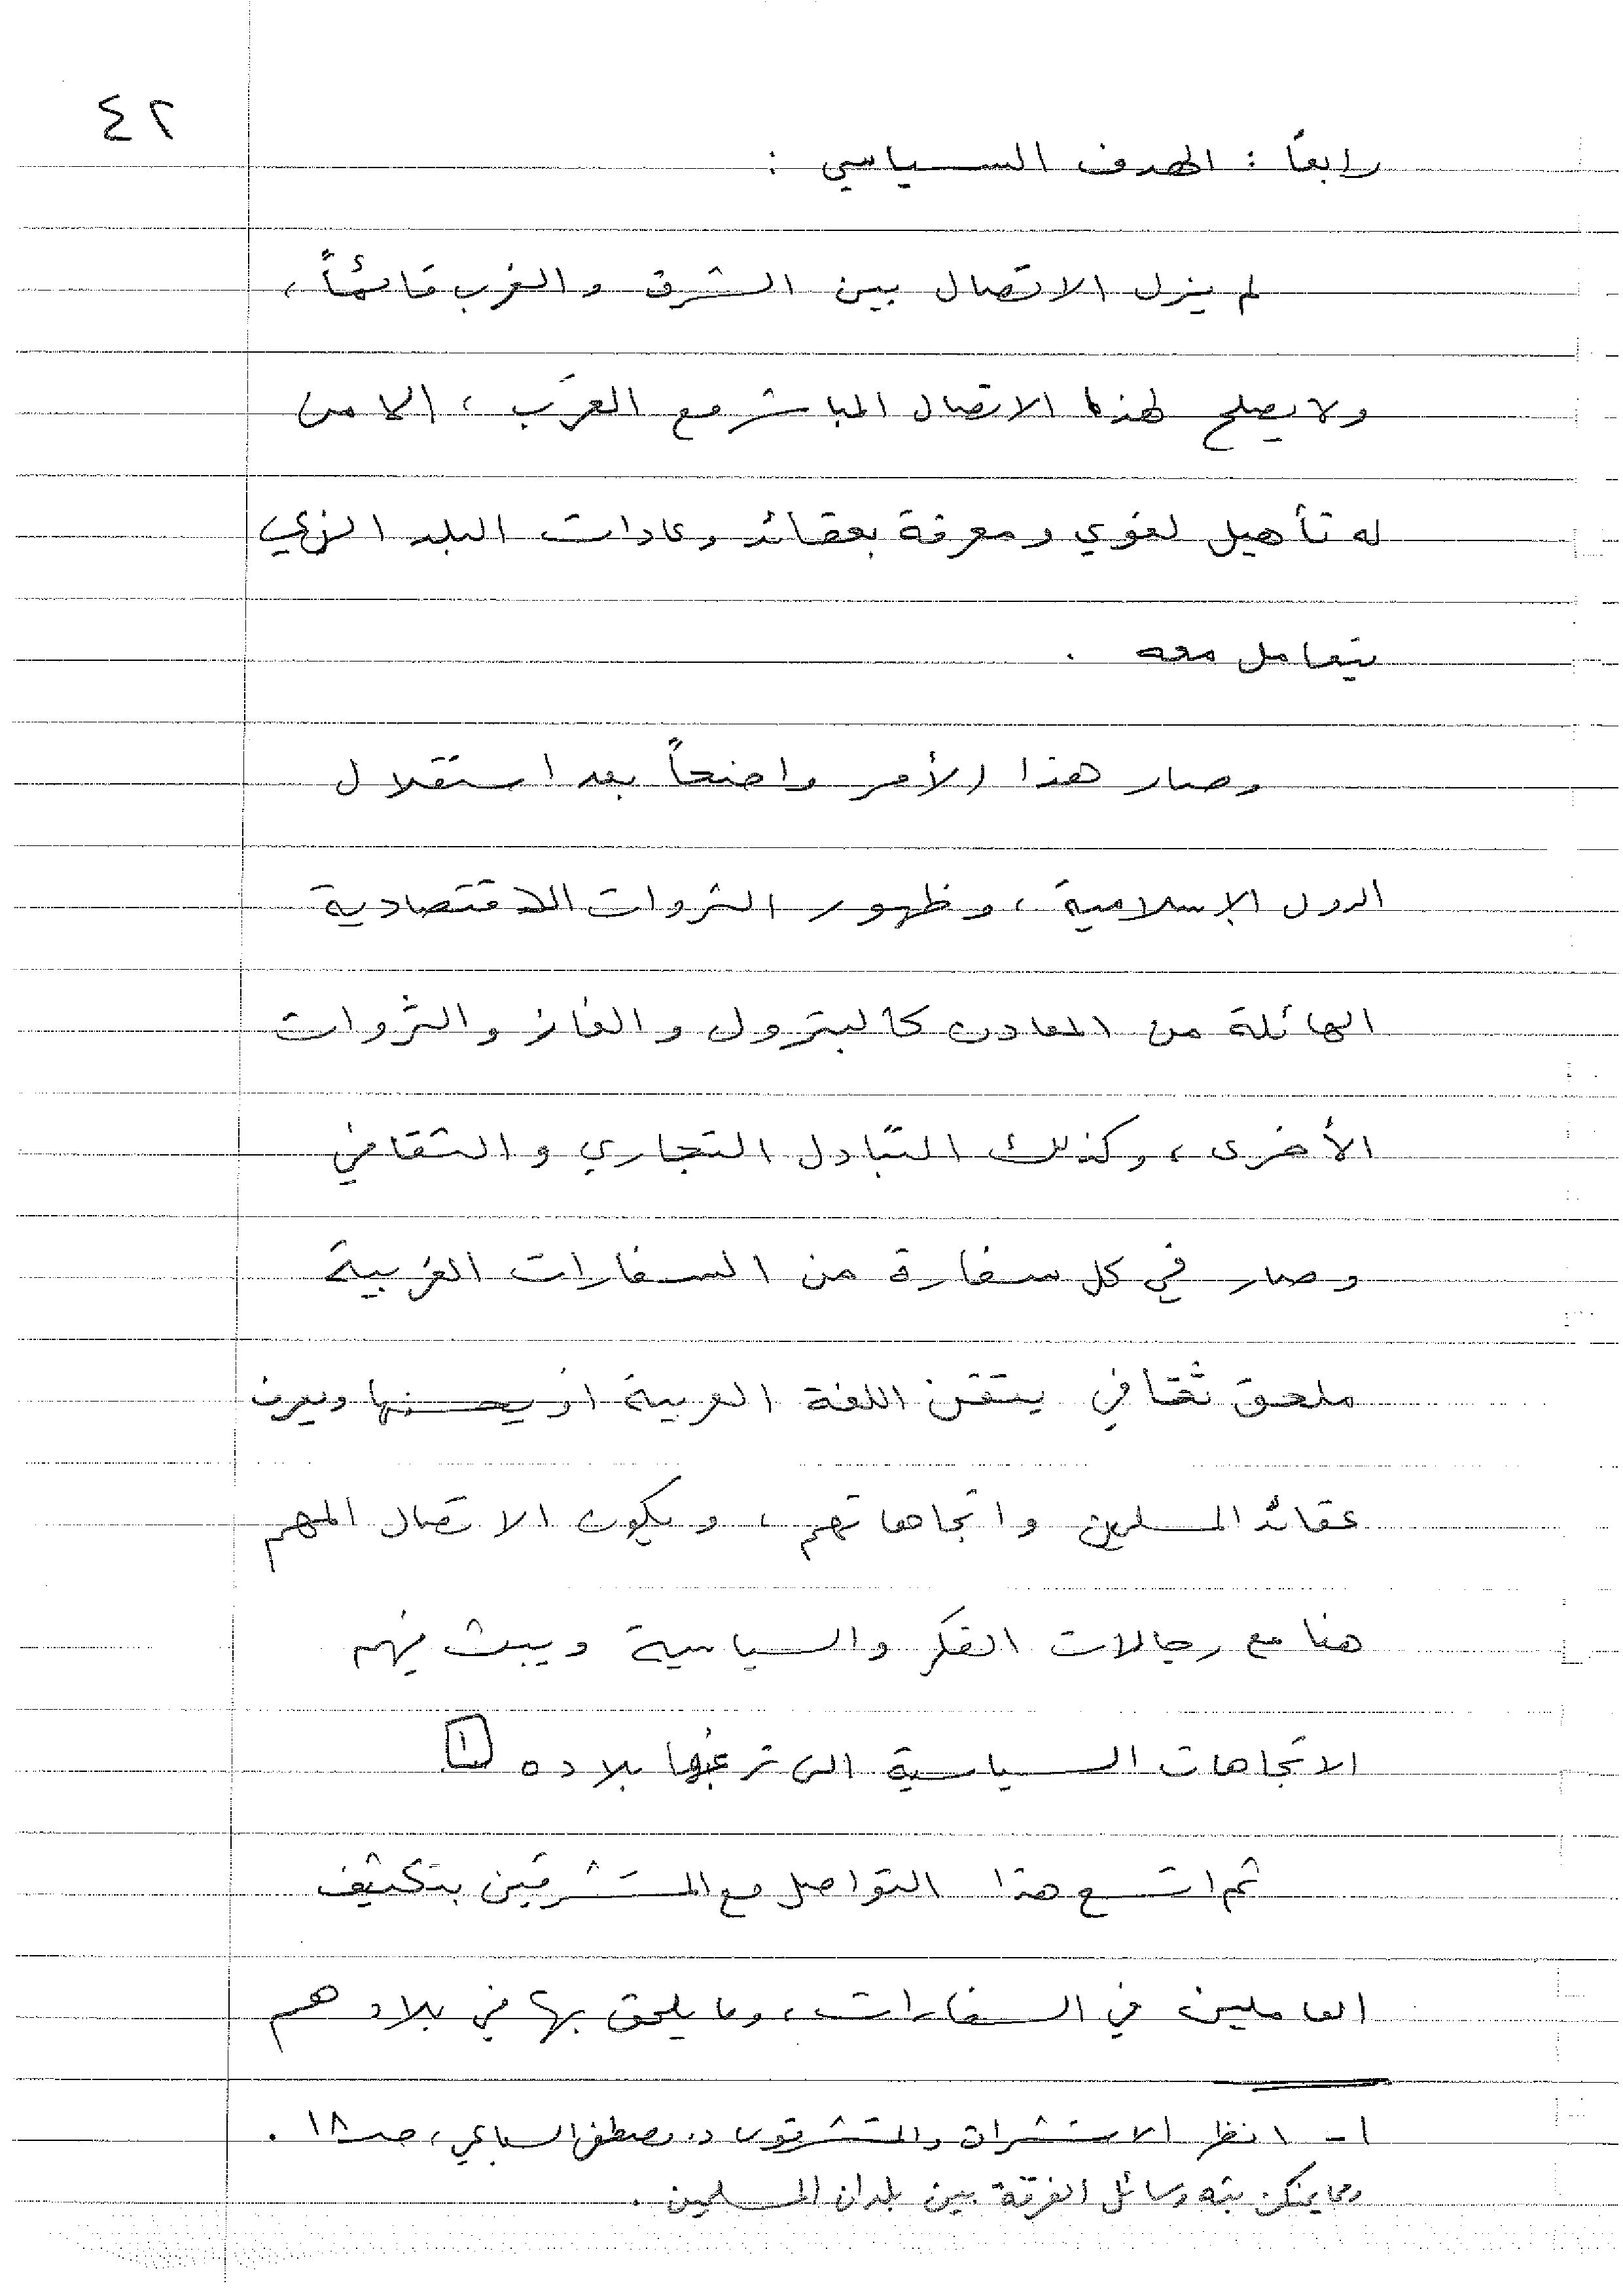 ٤٢
رابعاً : الهدف السياسي :
لم يزل الاتصال بين الشرق والغرب قائماً ،
ولا يصلح لهذا الاتصال المباشر مع العرب ، إلا من
له تأهيل لغوي ومعرفة بعقائد وعادات البلد الذي
يتعامل معه .
وصار هذا الأمر واضحاً بعد استقلال
الدول الإسلامية ، وظهور الثروات الاقتصادية
الهائلة من المعادن كالبترول والغاز والثروات
الأخرى ، وكذلك التبادل التجاري والثقافي
وصار في كل سفارة من السفارات الغربية
ملحق ثقافي يتقن اللغة العربية او يحسنها ويعرف
عقائد المسلمين واتجاهاتهم ، ويكون الاتصال المهم
هنا مع رجالات الفكر والسياسية ويبث فيهم
الاتجاهات السياسية التي ترغبها بلاده ١
ثم اتسع هذا التواصل مع المستشرقين بتكثيف
العاملين في السفارات ، وما يلحق بها في بلادهم
١ - انظر الاستشراق والمستشرقون د. مصطفى السباعي ، صـ ١٨ .
وما يمكن بثه وسائل الفرقة بين بلدان المسلمين .